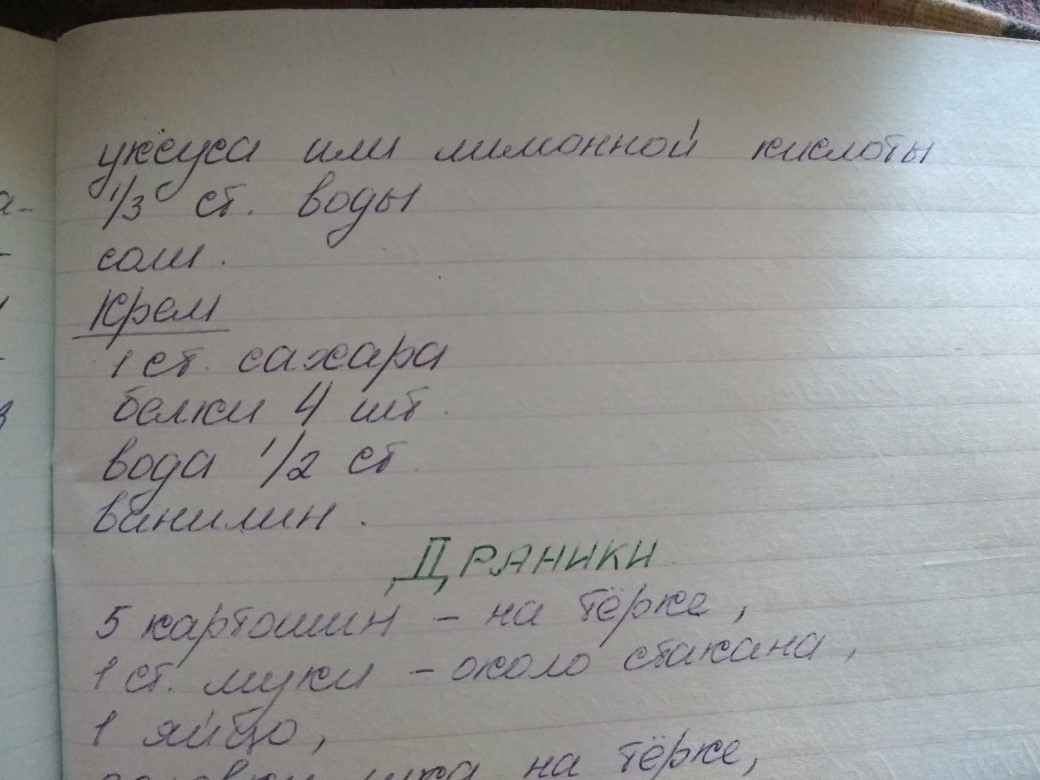 уксуса или лимонной кислоты
1/3 ст. воды
соли.
Крем
1 ст. сахара
белки 4 шт.
вода 1/2 ст.
ванилин.
ДРАНИКИ
5 картошин - на тёрке,
1 ст. муки - около стакана,
1 яйцо,
лука на тёрке,